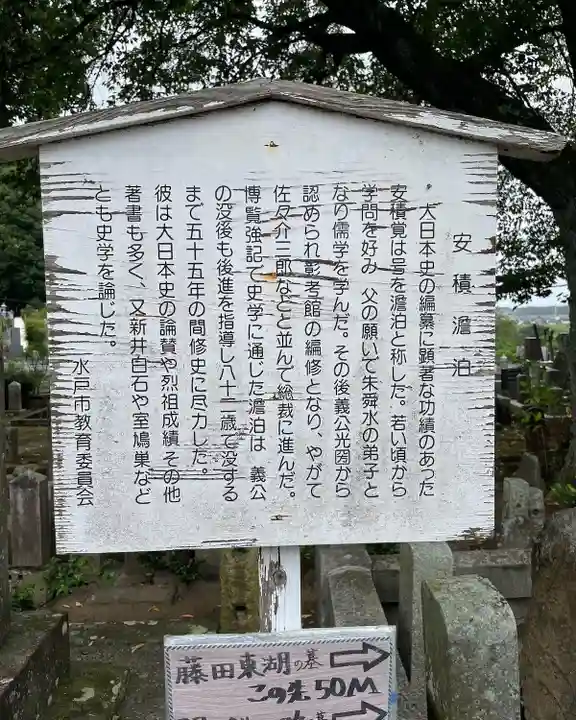 安積澹泊
大日本史の編纂に顕著な功績のあった
安積覚は号を澹泊と称した。若い頃から
学問を好み 父の願いで朱舜水の弟子と
なり儒学を学んだ。その後義公光圀から
認められ彰考館の編修となり、やがて
佐々介三郎などと並んで総裁に進んだ。
博覧強記で史学に通じた澹泊は 義公
の没後も後進を指導し八十二歳で没する
まで五十五年の間修史に尽力した。
彼は大日本史の論賛や烈祖成績 その他
著書も多く、又新井白石や室鳩巣など
とも史学を論じた。
水戸市教育委員会
藤田東湖の墓
この先50M